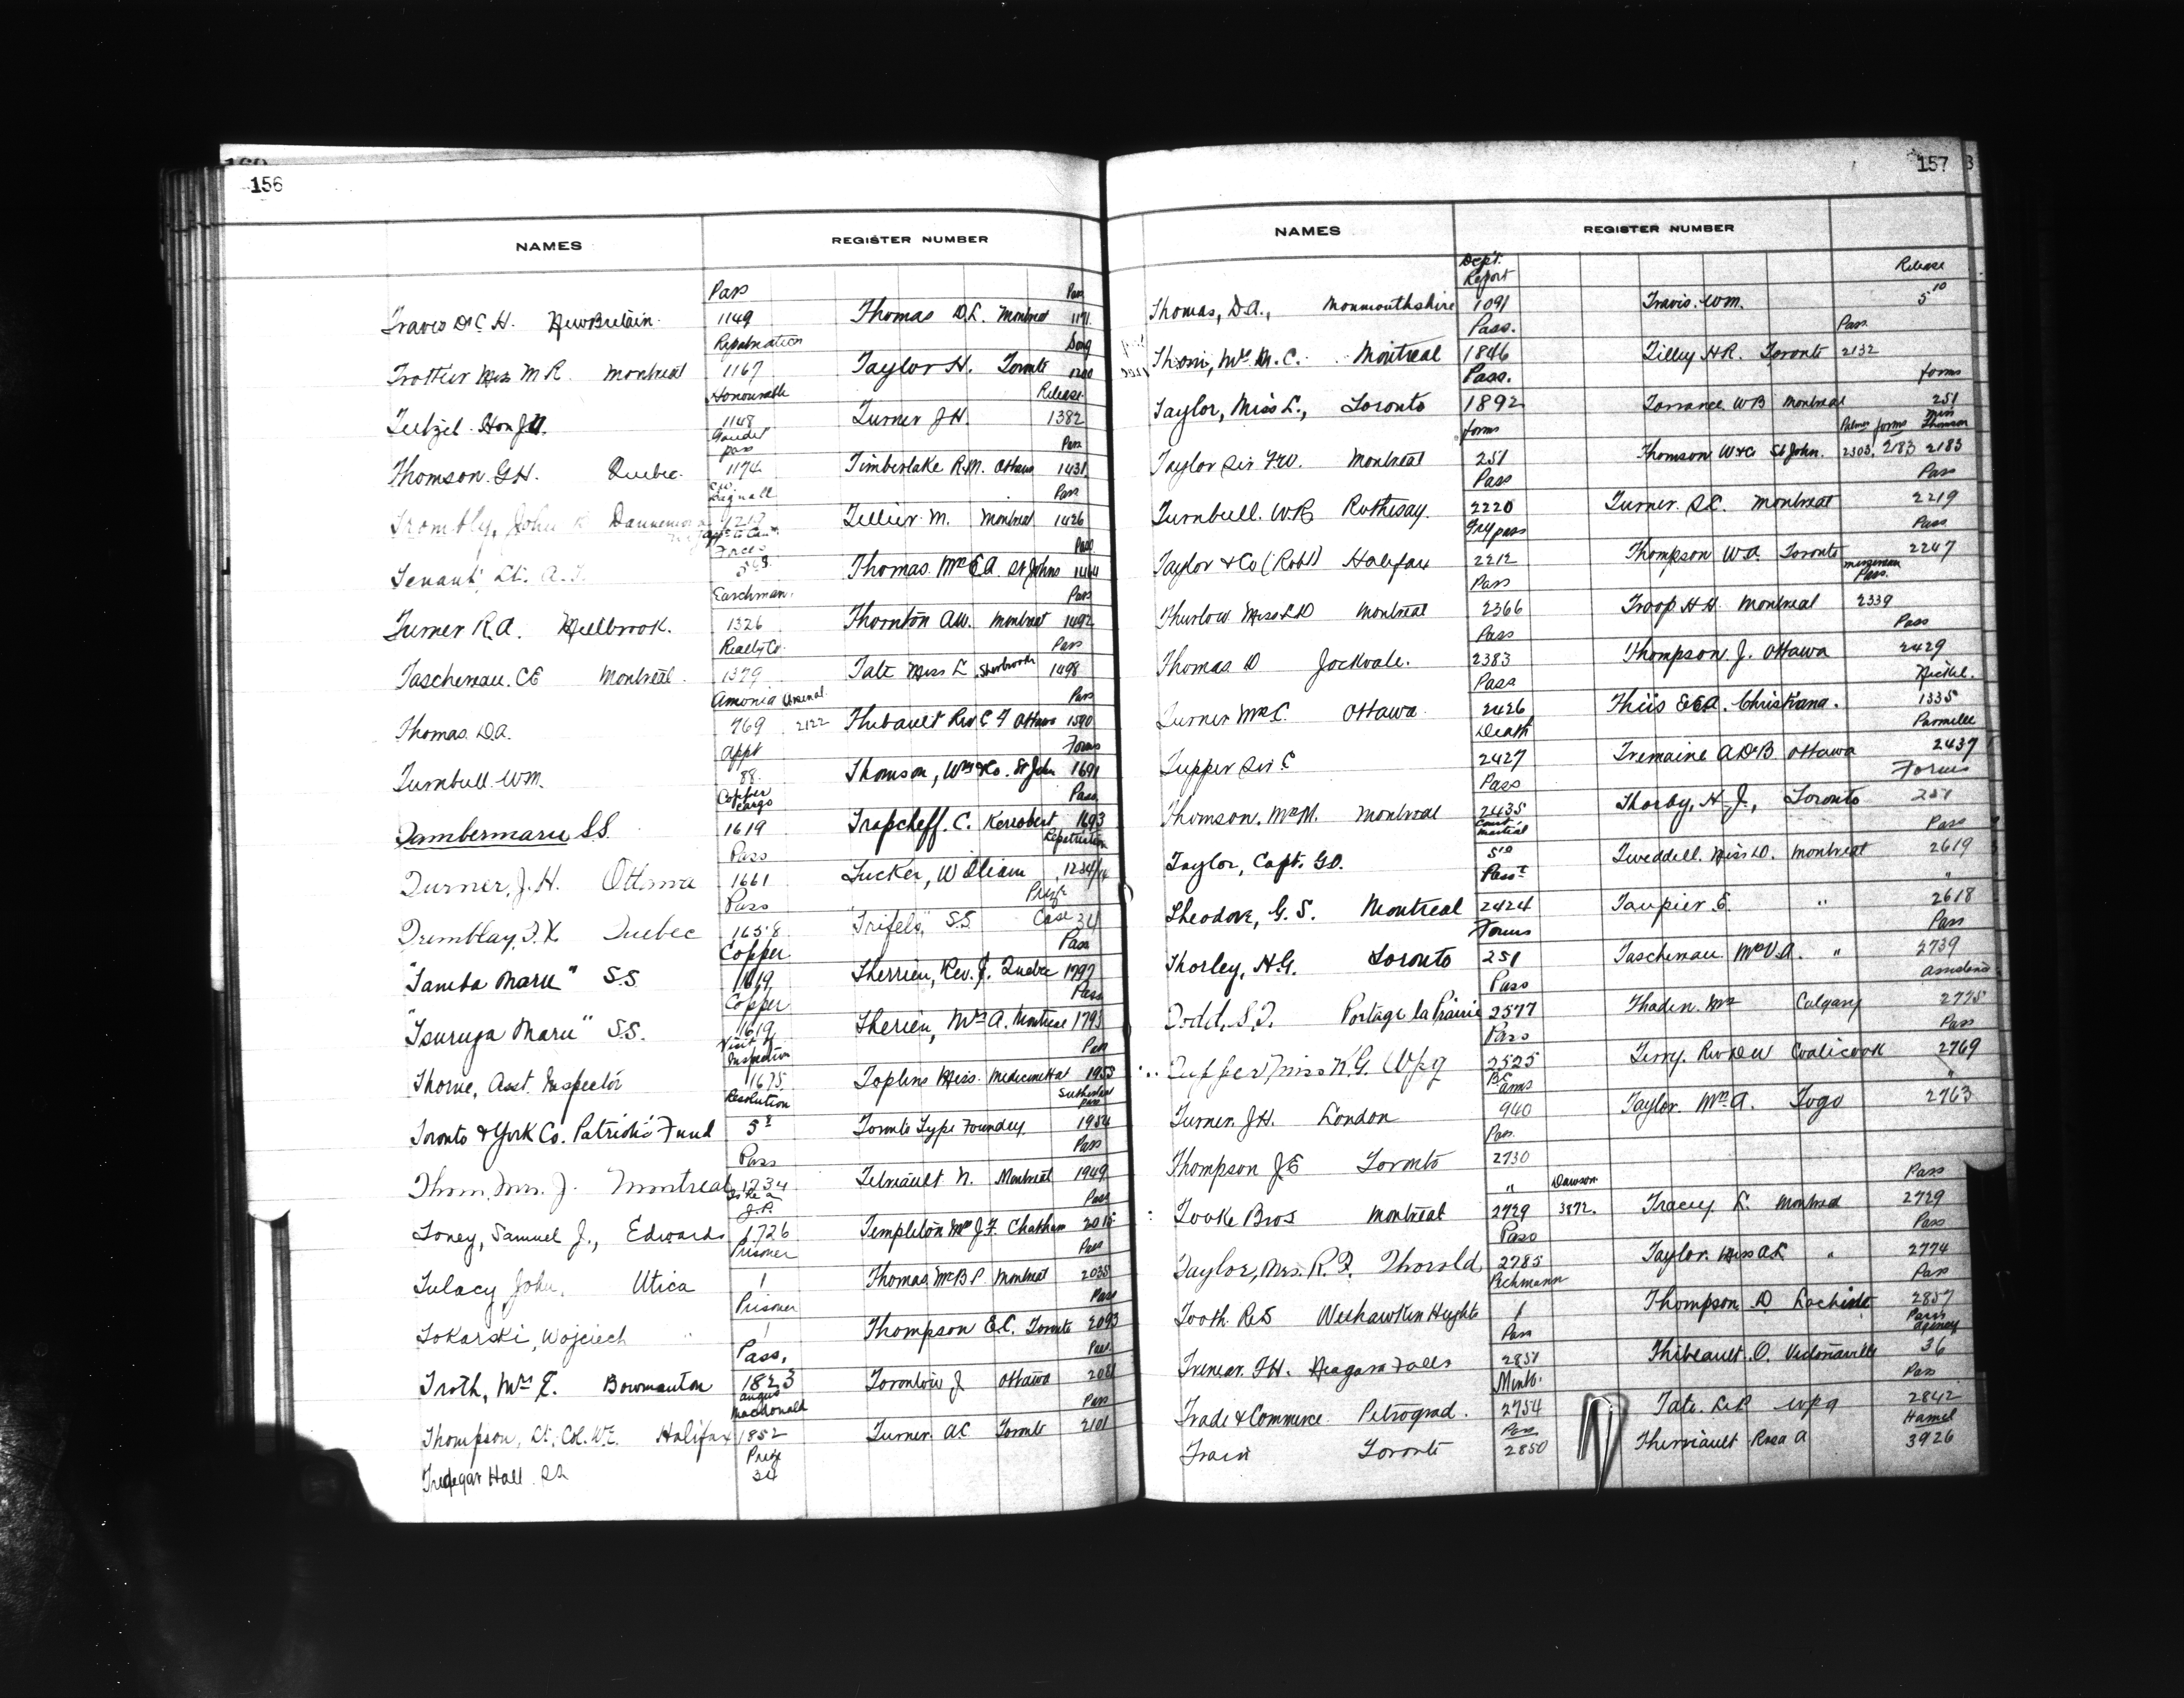 156
NAMES REGISTER NUMBER
Pass Pass
Travis Dr C. H. New Britain. 1149 Thomas D.L. Montreal 1171
Repatriation Song
Trottier Miss M R. Montreal 1167 Taylor H. Toronto 1200
Honourable Release
Teetzel Hon J V. 1148 Turner J H. 1382
pass Pass
Thomson. G H. Quebec. 1174 Timberlake R.M. Ottawa 1431
Pass
Trombly, John R Dannemora 1217 Tellier. M. Montreal 1426
Forces Pass
Tenant, Lt. A. T. 5 Thomas Mrs E A. St Johns 1464
Easchman. Pass
Turner R.A. Millbrook. 1326 Thornton A W. Montreal 1492
Realty Co. Pass
Taschereau. C E Montreal. 1379 Tate Miss L. Sherbrooke 1498
Amonia Arsenal Pass
Thomas. D.A. 769 2122 Thibault Rev C F Ottawa 1590
Appt Forms
Turnbull Wm. 88. Thomson, Wm & Co. St John 1691
Copper cargo Pass
Tambermaru S.S. 1619 Trapcheff. C. Kerrobert 1693
Pass Repatriation
Turner, J. H. Ottawa 1661 Tucker, William 1234/14
Pass Prize
Tremblay, T. X. Quebec 1658 "Trifels," S.S. Case 34
Copper Pass
"Tamba Maru" S.S. 1619 Therrien, Rev. J. Quebec 1797
Copper Pass
"Tsuruga Maru" S.S. 1619 Therien, Mrs A. Montreal 1795
Visit of Inspection Pass
Thorne, Asst. Inspector 1675 Topkins Miss. Medicine Hat 1955
Resolution Sutherland pass
Toronto & York Co. Patriotic Fund 5² Toronto Type Foundry. 1954
Pass Pass
Thom, Mrs. J. Montreal 1734 Telmault N. Montreal 1949
To be a J.P. Pass
Toney, Samuel J., Edwards 1726 Templeton Mrs J. F. Chatham 2015
Prisoner Pass
Tulacy John. Utica 1 Thomas, Mrs B P. Montreal 2035
Prisoner Pass
Tokarski, Wojciech " 1 Thompson E.C. Toronto 2093
Pass. Pass
Troth, Mrs E. Bowmanton 1823 Torontow J Ottawa 2081
Angus Macdonald Pass
Thompson, Lt, Col. W.E. Halifax 1852 Turner. A C. Toronto 2101
Prize
Tredegar Hall. SS 34
157
NAMES REGISTER NUMBER
Dept. Report Release
Thomas, D.A., Monmouthshire 1091 Travis. Wm. 5¹⁰
Pass. Pass
Thom, Mrs M. C. Montreal 1846 Tilley H R. Toronto 2132
Pass. forms
Taylor, Miss L., Toronto 1892 Torrance W B Montreal 251
forms Palmer forms Miss Thomson
Taylor Sir F W. Montreal 251 Thomson W & Co St John. 2303, 2183 2183
Pass Pass
Turnbull. W R Rothesay. 2220 Turner. S C. Montreal 2219
Try pass Pass
Taylor & Co (Robt) Halifax 2212 Thompson W A Toronto 2247
Pass Pass.
Thurlow Miss L D Montreal 2366 Troop H H. Montreal 2339
Pass Pass
Thomas D Jockvale. 2383 Thompson. J. Ottawa 2429
Pass Nickel.
Turner Mrs C. Ottawa 2426 Thiis E & A. Christiana. 1335
Death Parmelee
Tupper Sir C 2427 Tremaine A D B Ottawa 2437
Pass Forms
Thomson. Mrs M. Montreal 2435 Thorby, H. J., Toronto 251
Court martial Pass
Taylor, Capt. G D. 5¹⁰ Tweddell. Miss D. Montreal 2619
Passt "
Theodore, G. S. Montreal 2424 Taupier E. " 2618
Forms Pass
Thorley, H.G. Toronto 251 Taschereau Mrs V. A. " 2739
Pass Assistance
Todd, S.J. Portage la Prairie 2577 Thaden. Mrs Calgary 2775
Pass Pass
Tupper Miss K. G. Wpg 2525 Terry. Rev D W Coaticook 2769
B C arms "
Turner. J H. London 940 Taylor. Mrs A. Togo 2763
Pass.
Thompson J E Toronto 2730
" Dawson Pass
Tooke Bros Montreal 2729 3872. Tracey L. Montreal 2729
Pass Pass
Taylor, Mrs. R. F. Thorold 2785 Taylor. Miss A L " 2774
Pichmann Pass
Tooth. R S Weehawken Heights 1 Thompson D Lachine 2857
Pass Paris Agency
Trenear. F H. Niagara Falls 2851 Thibeault. O. Victoriaville 36
Minto. Pass
Trade & Commerce Petrograd. 2754 Tate. L R Wpg 2842
Pass Hamel
Train Toronto 2850 Therriault Rosa A 3926